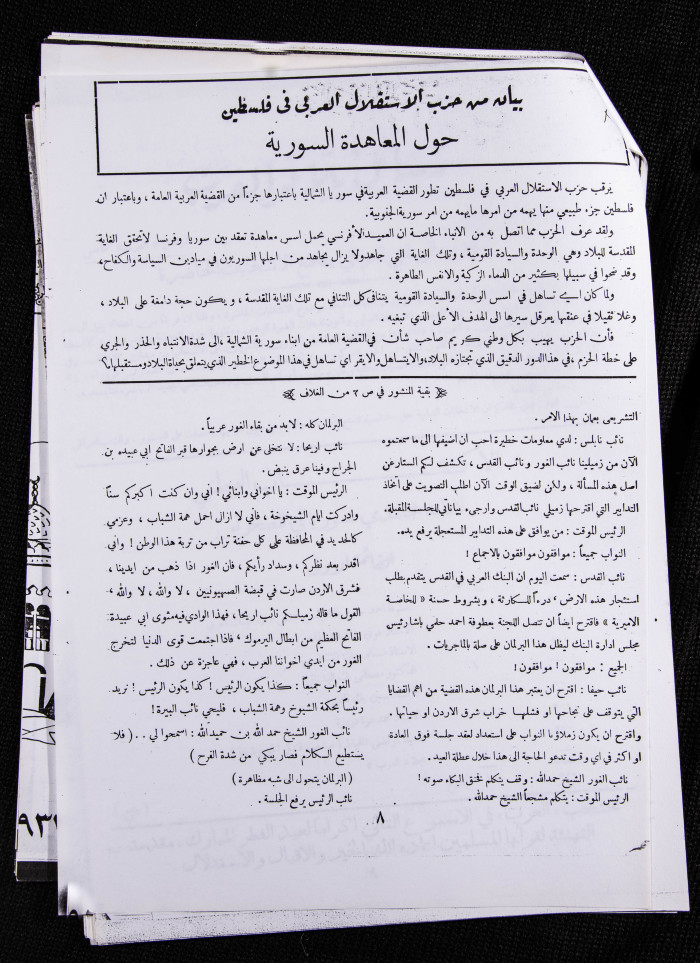 بيان من حزب الاستقلال العربي في فلسطين
حول المعاهدة السورية
يرقب حزب الاستقلال العربي في فلسطين تطور القضية العربية في سوريا الشمالية باعتبارها جزءاً من القضية العربية العامة ، وباعتبار ان
فلسطين جزء طبيعي منها يهمه من امرها مايهمه من امر سورية الجنوبية .
ولقد عرف الحزب مما اتصل به من الانباء الخاصة ان العميد الافرنسي يحمل اسس معاهدة تعقد بين سوريا وفرنسا لاتحقق الغاية
المقدسة للبلاد وهي الوحدة والسيادة القومية ، وتلك الغاية التي جاهد ولا يزال يجاهد من اجلها السوريون في ميادين السياسة والكفاح،
وقد ضحوا في سبيلها بكثير من الدماء الزكية والانفس الطاهرة .
ولما كان اي تساهل في اسس الوحدة والسيادة القومية يتنافى كل التنافي مع تلك الغاية المقدسة ، ويكون حجة دامغة على البلاد ،
وغلا ثقيلا في عنقها يعرقل سيرها الى الهدف الأعلى الذي تبغيه .
فأن الحزب يهيب بكل وطني كريم صاحب شأن في القضية العامة من ابناء سورية الشمالية ،الى شدة الانتباه والحذر والجري
على خطة الحزم ،في هذا الدور الدقيق الذي تجتازه البلاد، والايتساهل والايقر اي تساهل في هذا الموضوع الخطير الذي يتعلق بحياة البلاد ومستقبلها ؟
بقية المنشور في ص ٣ من الغلاف
التشريعي بعمان بهذا الامر .
نائب نابلس : لدي معلومات خطيرة احب ان اضيفها الى ما سمعتموه
الآن من زميلينا نائب الغور ونائب القدس ، تكشف لكم الستار عن
اصل هذه المسألة ، ولكن لضيق الوقت الآن اطلب التصويت على أتخاذ
التدابير التي اقترحها زميلي نائب القدس وارجىء بياناتي للجلسة المقبلة.
الرئيس الموقت : من يوافق على هذه التدابير المستعجلة يرفع يده.
النواب جميعاً : موافقون موافقون بالاجماع !
نائب القدس : سمعت اليوم ان البنك العربي في القدس يتقدم بطلب
استئجار هذه الارض ، درءاً للكارثة ، وبشروط حسنة « للخاصة
الاميرية » فاقترح ايضاً ان تتصل اللجنة بعطوفة احمد حلمي باشا رئيس
مجلس ادارة البنك ليظل هذا البرلمان على صلة بالماجريات .
الجميع : موافقون ! موافقون !
نائب حيفا : اقترح ان يعتبر هذا البرلمان هذه القضية من اهم القضايا
التي يتوقف على نجاحها او فشلها خراب شرق الاردن او حياتها .
واقترح ان يكون زملاؤنا النواب على استعداد لعقد جلسة فوق العادة
او اكثر في اي وقت تدعو الحاجة الى هذا خلال عطلة العيد .
نائب الغور الشيخ حمدالله : وقف يتكلم فخنق البكاء صوته !
الرئيس الموقت : يتكلم مشجعاً الشيخ حمدالله .
البرلمان كله : لابد من بقاء الغور عربياً .
نائب اريحا : لا نتخلى عن ارض بجوارها قبر الفاتح ابي عبيده بن
الجراح وفينا عرق ينبض .
الرئيس الموقت : يا اخواني وابنائي ! اني وان كنت اكبركم سناً
وادركت ايام الشيخوخة ، فأني لا ازال احمل همة الشباب ، وعزمي
كالحديد في المحافظة على كل حفنة تراب من تربة هذا الوطن ! واني
اقدر بعد نظركم ، وسداد رأيكم ، فان الغور اذا ذهب من ايدينا ،
فشرق الاردن صارت في قبضة الصهيونيين ، لا والله ، لا والله ،
القول ما قاله زميلكم نائب اريحا ، فهذا الوادي فيه مثوى ابي عبيدة
الفاتح العظيم من ابطال اليرموك ، فاذا اجتمعت قوى الدنيا لتخرج
الغور من ايدي اخواننا العرب ، فهي عاجزة عن ذلك .
النواب جميعاً : كذا يكون الرئيس ! كذا يكون الرئيس ! نريد
رئيساً بحكمة الشيوخ وهمة الشباب ، فليحي نائب البيرة !
نائب الغور الشيخ حمد الله بن حميد الله : اسمحوا لي . . ( فلا
يستطيع الكلام فصار يبكي من شدة الفرح )
( البرلمان يتحول الى شبه مظاهرة )
نائب الرئيس يرفع الجلسة .
٨